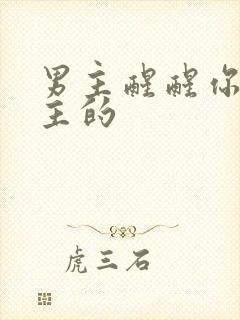 男主醒醒你
主的
虎三石